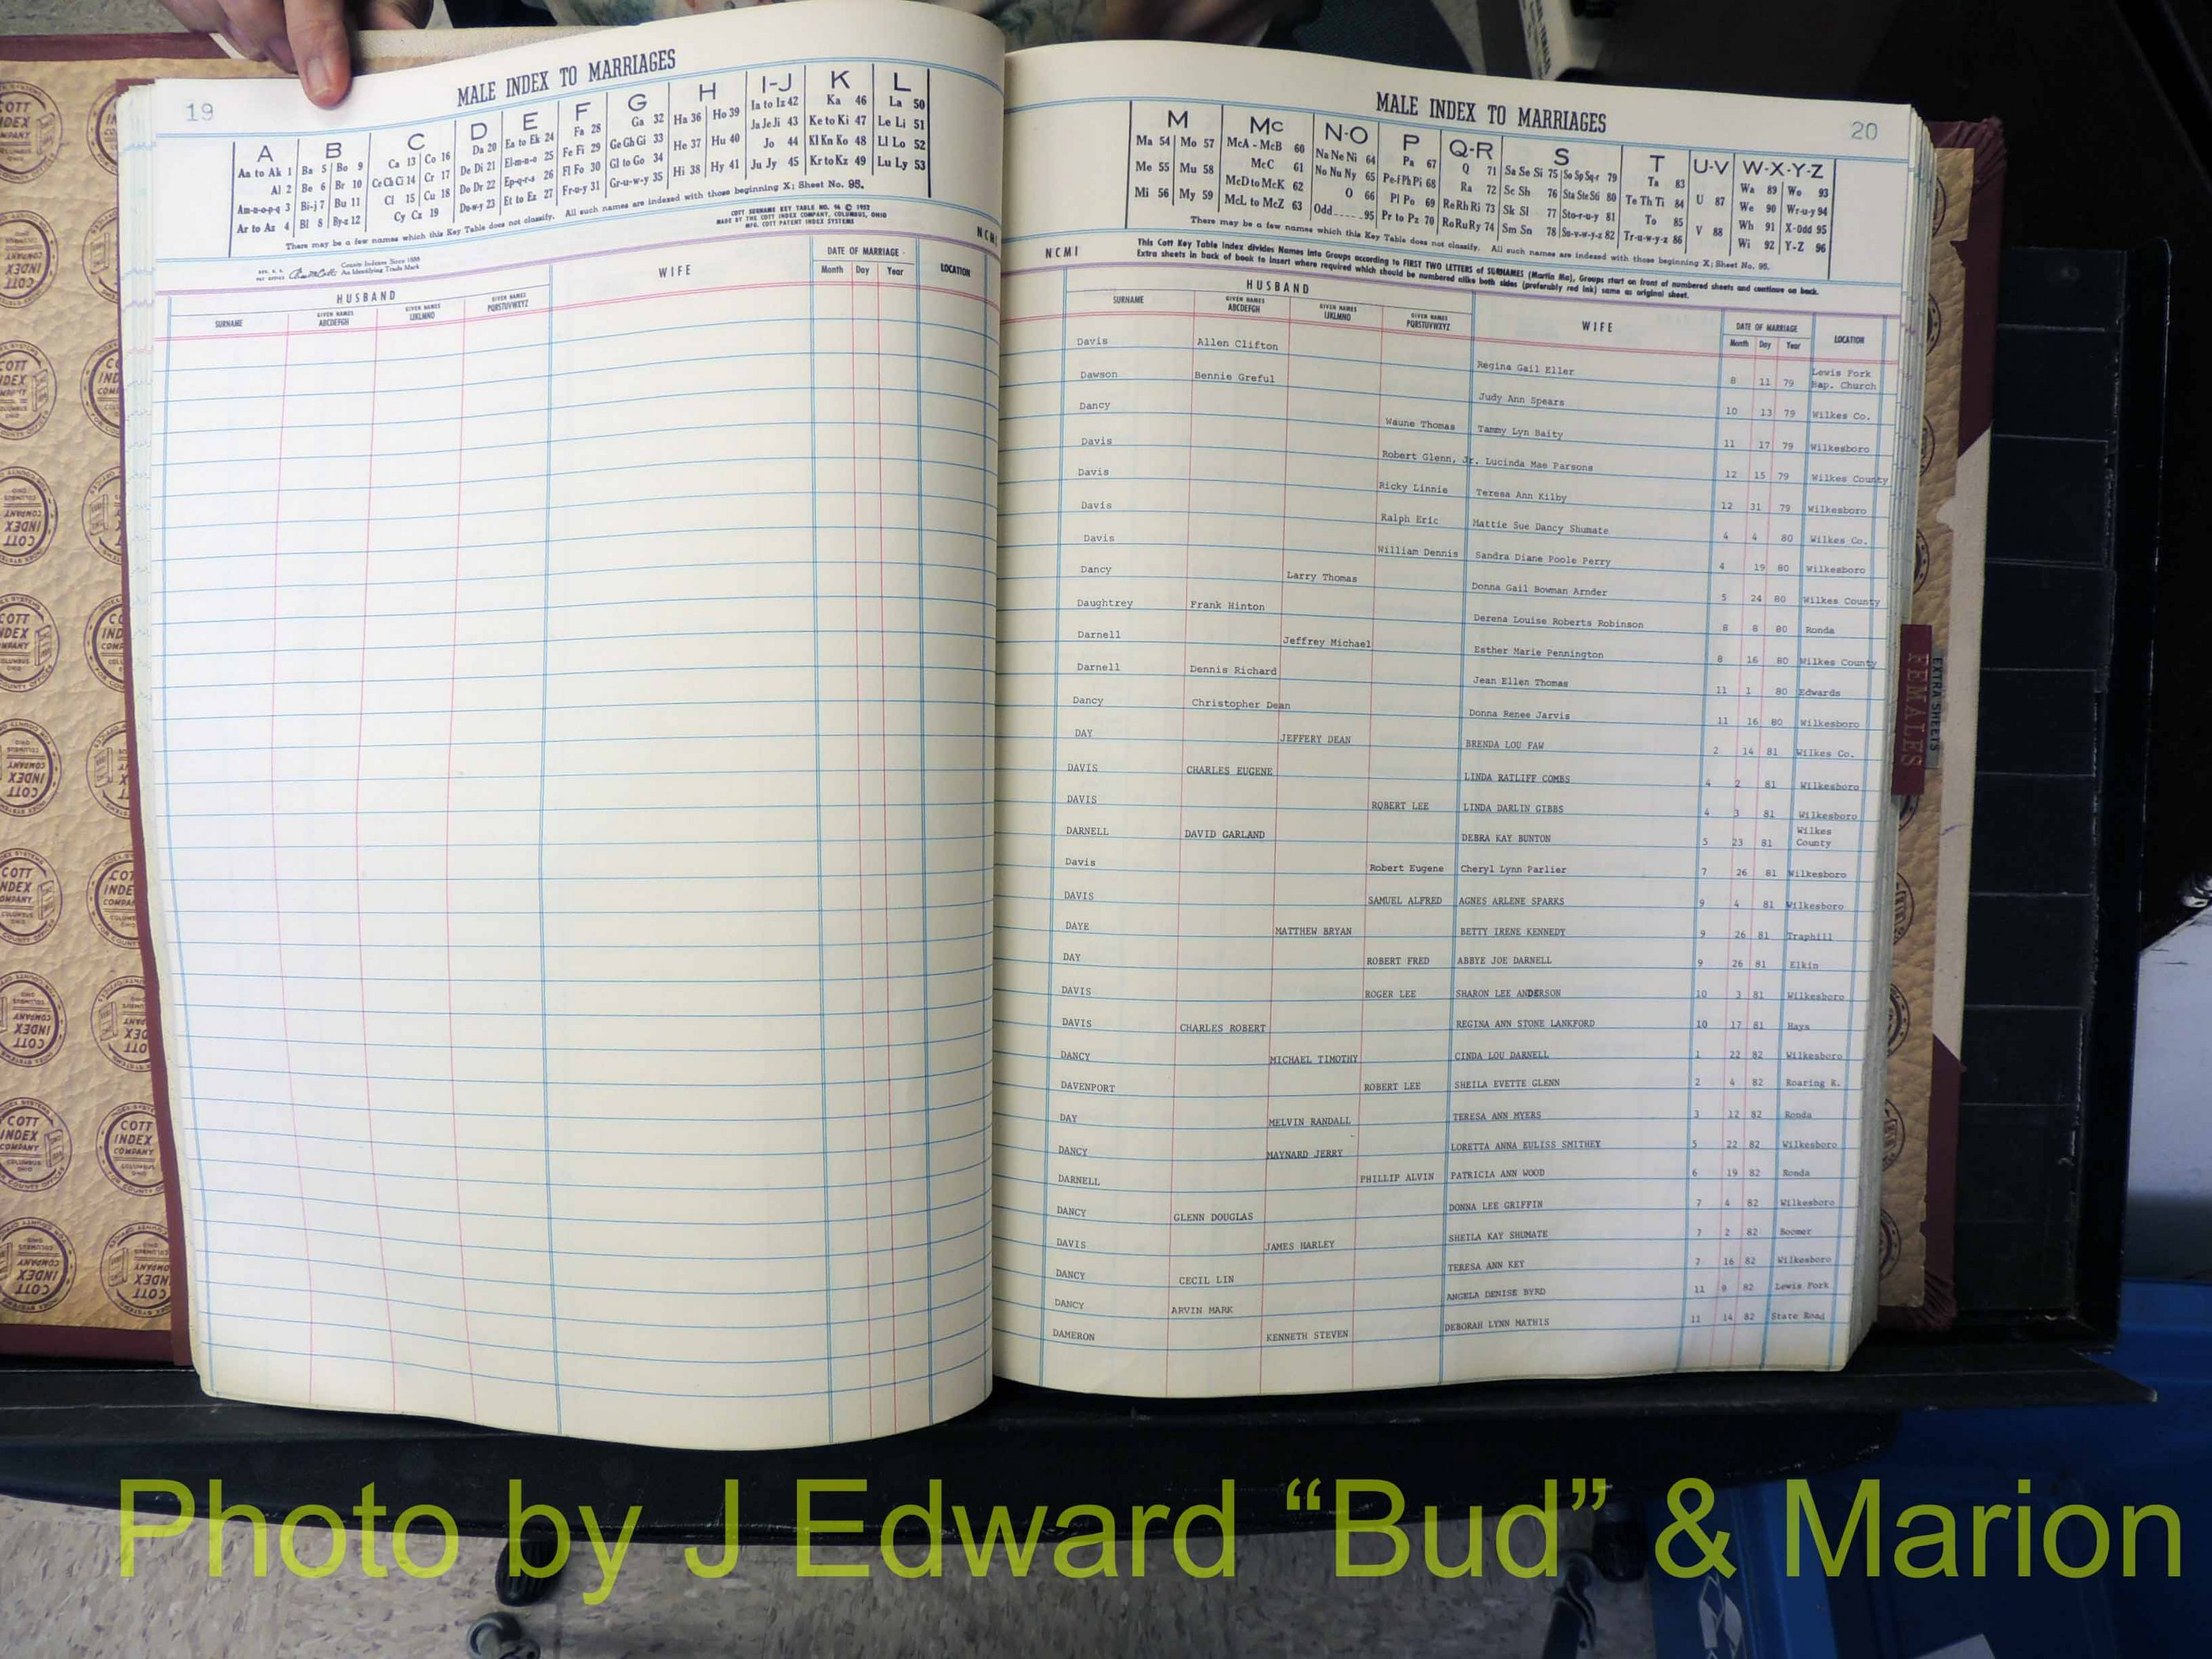 19
MALE INDEX TO MARRIAGES
A B C D E F G H I-J K L
Aa to Ak 1 Ba 5 Bo 9 Ca 13 Co 16 Da 20 Ea to Ek 24 Fa 28 Ga 32 Ha 36 Ho 39 Ia to Iz 42 Ka 46 La 50
Al 2 Be 6 Br 10 Ce Ch Ci 14 Cr 17 De Di 21 El-m-n-o 25 Fe Fi 29 Ge Gh Gi 33 He 37 Hu 40 Ja Je Ji 43 Ke to Ki 47 Le Li 51
Am-n-o-p-q 3 Bi-j 7 Bu 11 Cl 15 Cu 18 Do Dr 22 Ep-q-r-s 26 Fl Fo 30 Gl to Go 34 Hi 38 Hy 41 Jo 44 Kl Kn Ko 48 Ll Lo 52
Ar to Az 4 Bl 8 By-z 12 Cy Cz 19 Du-w-y 23 Et to Ez 27 Fr-u-y 31 Gr-u-w-y 35 Ju Jy 45 Kr to Kz 49 Lu Ly 53
There may be a few names which this Key Table does not classify. All such names are indexed with those beginning X; Sheet No. 95.
COTT SURNAME KEY TABLE NO. 96 © 1952
MADE BY THE COTT INDEX COMPANY, COLUMBUS, OHIO
MFG. COTT PATENT INDEX SYSTEMS
County Indexes Since 1888
An Identifying Trade Mark
HUSBAND WIFE DATE OF MARRIAGE LOCATION
SURNAME GIVEN NAMES ABCDEFGH GIVEN NAMES IJKLMNO GIVEN NAMES PQRSTUVWXYZ Month Day Year
20
MALE INDEX TO MARRIAGES
M Mc N-O P Q-R S T U-V W-X-Y-Z
Ma 54 Mo 57 McA - McB 60 Na Ne Ni 64 Pa 67 Q 71 Sa Se Si 75 So Sp Sq-r 79 Ta 83 Wa 89 Wo 93
Me 55 Mu 58 McC 61 No Nu Ny 65 Pe-f Ph Pi 68 Ra 72 Sc Sh 76 Sta Ste Sti 80 Te Th Ti 84 U 87 We 90 Wr-u-y 94
Mi 56 My 59 McD to McK 62 O 66 Pl Po 69 Re Rh Ri 73 Sk Sl 77 Sto-r-u-y 81 To 85 Wh 91 X-Odd 95
McL to McZ 63 Odd 95 Pr to Pz 70 Ro Ru Ry 74 Sm Sn 78 Su-v-w-y-z 82 Tr-u-w-y-z 86 V 88 Wi 92 Y-Z 96
There may be a few names which this Key Table does not classify. All such names are indexed with those beginning X; Sheet No. 95.
NCMI
This Cott Key Table Index divides Names into Groups according to FIRST TWO LETTERS of SURNAMES (Martin Ma), Groups start on front of numbered sheets and continue on back.
Extra sheets in back of book to insert where required which should be numbered alike both sides (preferably red ink) same as original sheet.
HUSBAND WIFE DATE OF MARRIAGE LOCATION
SURNAME GIVEN NAMES ABCDEFGH GIVEN NAMES IJKLMNO GIVEN NAMES PQRSTUVWXYZ Month Day Year
Davis Allen Clifton Regina Gail Eller 8 11 79 Lewis Fork Bap. Church
Dawson Bennie Greful Judy Ann Spears 10 13 79 Wilkes Co.
Dancy Waune Thomas Tammy Lyn Baity 11 17 79 Wilkesboro
Davis Robert Glenn, Jr. Lucinda Mae Parsons 12 15 79 Wilkes County
Davis Ricky Linnie Teresa Ann Kilby 12 31 79 Wilkesboro
Davis Ralph Eric Mattie Sue Dancy Shumate 4 4 80 Wilkes Co.
Davis William Dennis Sandra Diane Poole Perry 4 19 80 Wilkesboro
Dancy Larry Thomas Donna Gail Bowman Arnder 5 24 80 Wilkes County
Daughtrey Frank Hinton Derena Louise Roberts Robinson 8 8 80 Ronda
Darnell Jeffrey Michael Esther Marie Pennington 8 16 80 Wilkes County
Darnell Dennis Richard Jean Ellen Thomas 11 1 80 Edwards
Dancy Christopher Dean Donna Renee Jarvis 11 16 80 Wilkesboro
DAY JEFFERY DEAN BRENDA LOU FAW 2 14 81 Wilkes Co.
DAVIS CHARLES EUGENE LINDA RATLIFF COMBS 4 2 81 Wilkesboro
DAVIS ROBERT LEE LINDA DARLIN GIBBS 4 3 81 Wilkesboro
DARNELL DAVID GARLAND DEBRA KAY BUNTON 5 23 81 Wilkes County
Davis Robert Eugene Cheryl Lynn Parlier 7 26 81 Wilkesboro
DAVIS SAMUEL ALFRED AGNES ARLENE SPARKS 9 4 81 Wilkesboro
DAYE MATTHEW BRYAN BETTY IRENE KENNEDY 9 26 81 Traphill
DAY ROBERT FRED ABBYE JOE DARNELL 9 26 81 Elkin
DAVIS ROGER LEE SHARON LEE ANDERSON 10 3 81 Wilkesboro
DAVIS CHARLES ROBERT REGINA ANN STONE LANKFORD 10 17 81 Hays
DANCY MICHAEL TIMOTHY CINDA LOU DARNELL 1 22 82 Wilkesboro
DAVENPORT ROBERT LEE SHEILA EVETTE GLENN 2 4 82 Roaring R.
DAY MELVIN RANDALL TERESA ANN MYERS 3 12 82 Ronda
DANCY MAYNARD JERRY LORETTA ANNA EULISS SMITHEY 5 22 82 Wilkesboro
DARNELL PHILLIP ALVIN PATRICIA ANN WOOD 6 19 82 Ronda
DANCY GLENN DOUGLAS DONNA LEE GRIFFIN 7 4 82 Wilkesboro
DAVIS JAMES HARLEY SHEILA KAY SHUMATE 7 2 82 Boomer
DANCY CECIL LIN TERESA ANN KEY 7 16 82 Wilkesboro
DANCY ARVIN MARK ANGELA DENISE BYRD 11 9 82 Lewis Fork
DAMERON KENNETH STEVEN DEBORAH LYNN MATHIS 11 14 82 State Road
EXTRA SHEETS
FEMALES
COTT INDEX COMPANY COLUMBUS OHIO
Photo by J Edward “Bud” & Marion